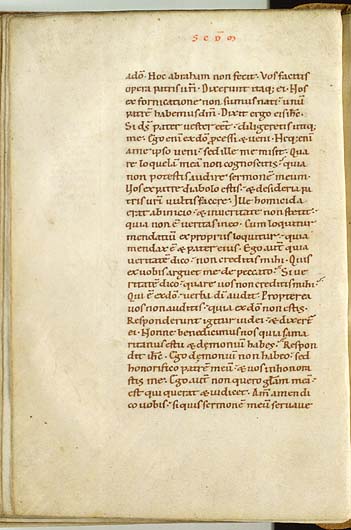 SCDM
a dō. Hoc abraham non fecit. Vos facitis
opera patris uri. Dixerunt itaq; ei. Nos
ex fornicatione non sumus nati. unū
patrē habemus dm̄. Dixit ergo eis ihc̄.
Si ds̄ pater uester eēt. diligeretis utiq;
me. Ego eni ex dō pcessi & ueni. Neq; eni
a me ipso ueni. sed ille me misit. Qua
re loquelā meā non cognoscitis. quia
non potestis audire sermonē meum.
Uos ex patre diabolo estis. & desideria pa
tris uri uultis facere. Ille homicida
erat ab inicio. & in ueritate non stetit.
quia non ē ueritas in eo. Cum loquitur
mendatiū ex propriis loquitur. quia
mendax ē & pater eius. Ego autē quia
ueritatē dico. non creditis mihi. Quis
ex uobis arguet me de peccato. Si ue
ritatē dico. quare uos non creditis mihi.
Qui ē ex dō. uerba di audit. Propterea
uos non auditis. quia ex dō non estis.
Responderunt igitur iudei. & dixerē
ei. Nonne benedicimus nos quia sama
ritanus es tu & demoniū habes. Respon
dit ihc̄. Ego demoniū non habeo. sed
honorifico patrē meū. & uos inhonora
stis me. Ego aut̄ non quero glam̄ meā.
est qui querat & iudicet. Am̄ amen di
co uobis. si quis sermonē meū seruaue